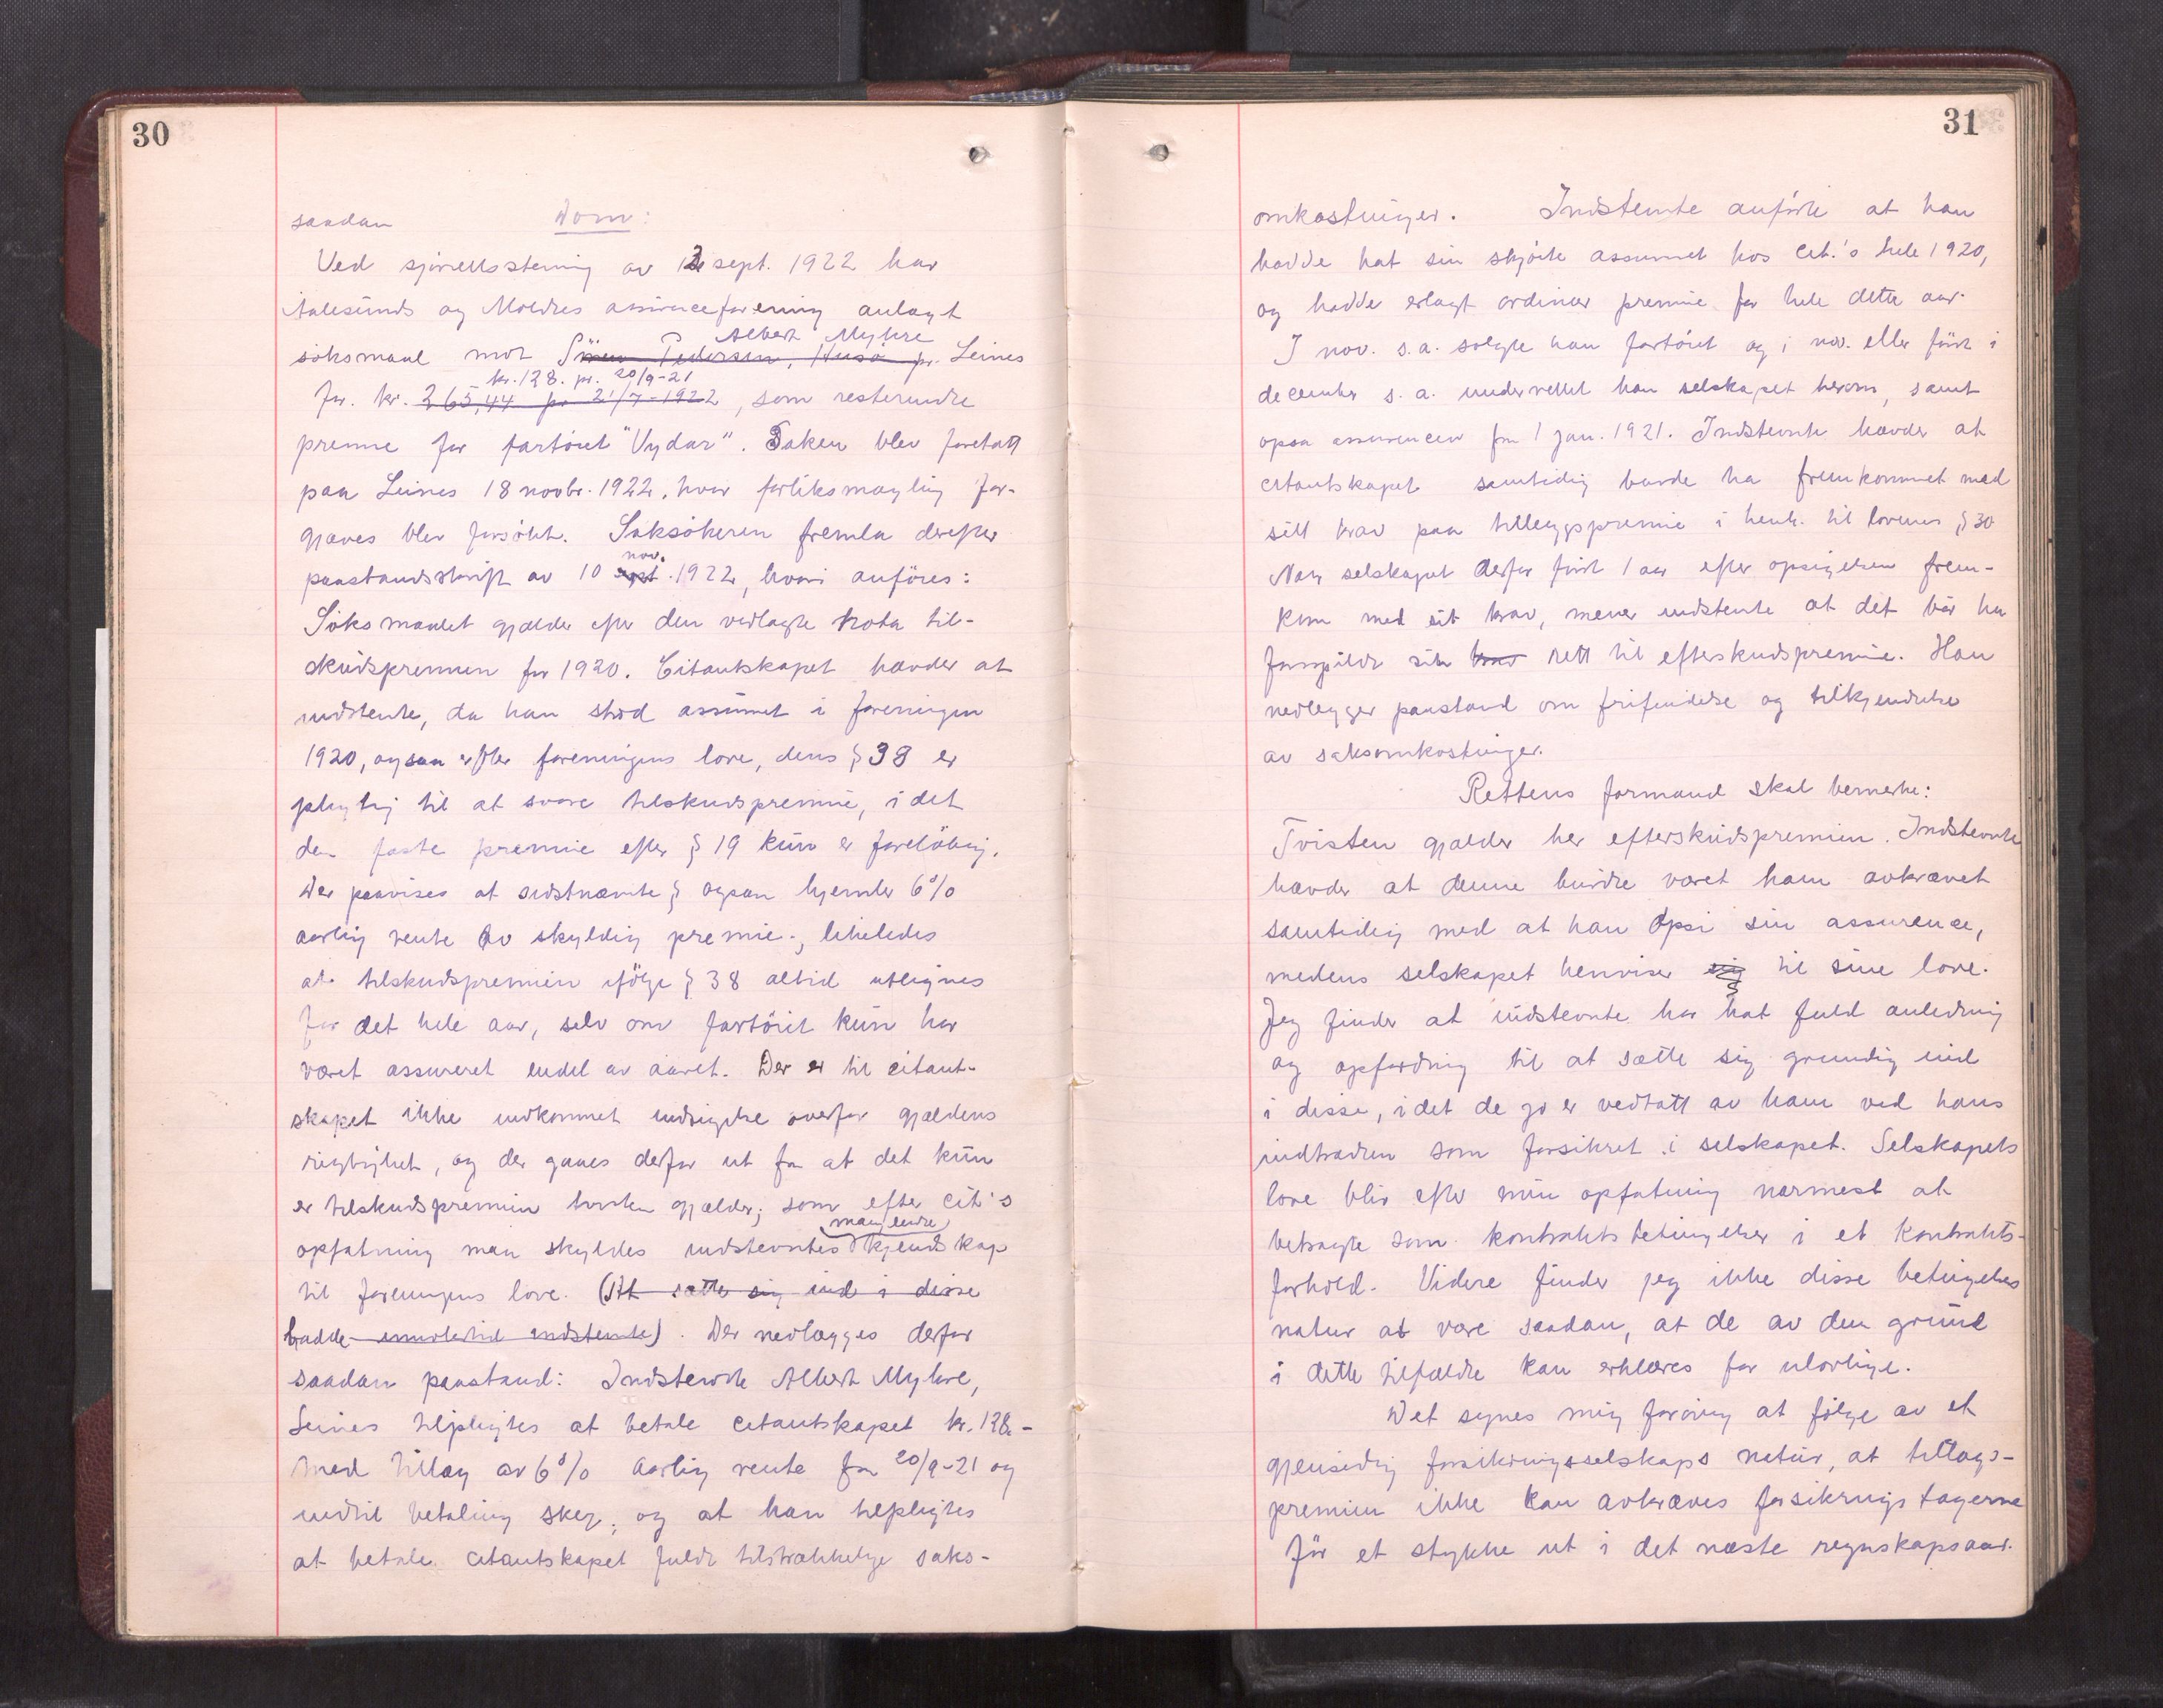 30
saadan Dom:
Ved sjørettsstevning av 12 sept. 1922 har
Aalesunds og Moldes assuranceforening anlagt
Albert Myhre
söksmaal mot Sören Pedersen, Husö pr. Leines
kr. 128. pr. 20/9-21
for kr. 265,44 pr 21/7-1922, som resterende
premie for fartöiet "Vydar". Saken blev foretatt
paa Leines 18 novbr. 1922, hvor forliksmægling for-
gjæves blev forsökt. Saksökeren fremla derefter
nov.
paastandsskrift av 10 sept. 1922, hvori anföres:
Söksmaalet gjælder efter den vedlagte nota til-
skudspremien for 1920. Citantskapet hævder at
indstevnte, da han stod assuret i foreningen
1920, ogsaa efter foreningens love, dens § 38 er
pligtig til at svare tilskudspremie, idet
den faste premie efter § 19 kun er forelöbig.
Der paavises at sidstnævnte § ogsaa hjemler 6%
aarlig rente av skyldig premie, likeledes
at tilskudspremien ifölge § 38 altid utlignes
for det hele aar, selv om fartöiet kun har
været assureret endel av aaret. Der er til citant-
skapet ikke indkommet indsigelse overfor gjældens
rigtighet, og der gaaes derfor ut fra at det kun
er tilskudspremien tvisten gjælder; som efter cit's
manglende
opfatning maa skyldes indstevntes kjendskap
til foreningens love. (At sætte sig ind i disse
hadde imidlertid indstevnte). Der nedlægges derfor
saadan paastand: Indstevnte Albert Myhre,
Leines tilpligtes at betale citantskapet kr. 128.-
med tillæg av 6% aarlig rente fra 20/9-21 og
indtil betaling skeer, og at han tilpligtes
at betale citantskapet fulde tilstrækkelige saks-
31
omkostninger. Indstevnte anförte at han
hadde hat sin skjöite assuret hos cit.'s hele 1920,
og hadde erlagt ordinær premie for hele dette aar.
I nov. s.a. solgte han fartöiet og i nov. eller först i
december s.a. underrettet han selskapet herom, samt
opsa assurancen fra 1 jan. 1921. Indstevnte hævder at
citantskapet samtidig burde ha fremkommet med
sitt krav paa tilleggspremie i henh. til lovenes § 30
Naar selskapet derfor först 1 aar efter opsigelsen frem-
kom med sit krav, mener indstevnte at det bör ha
forspildt sin krav rett til efterskudspremie. Han
nedlegger paastand om frifindelse og tilkjendelse
av saksomkostninger.
Rettens formand skal bemerke:
Tvisten gjælder her efterskudspremien. Indstevnte
hævder at denne burde været ham avkrævet
samtidig med at han opsa sin assurence,
medens selskapet henviser sig til sine love.
Jeg finder at indstevnte har hat fuld anledning
og opfordring til at sætte sig grundig ind
i disse, idet de jo er vedtatt av ham ved hans
indtræden som forsikret i selskapet. Selskapets
love blir efter min opfatning nærmest at
betragte som kontraktsbetingelser i et kontrakts-
forhold. Videre finder jeg ikke disse betingelses
natur at være saadan, at de av den grund
i dette tilfælde kan erklæres for ulovlige.
Det synes mig forövrig at fölge av et
gjensidig forsikringsselskaps natur, at tillægs-
premien ikke kan avkræves forsikringstagerne
för et stykke ut i det næste regnskapsaar.